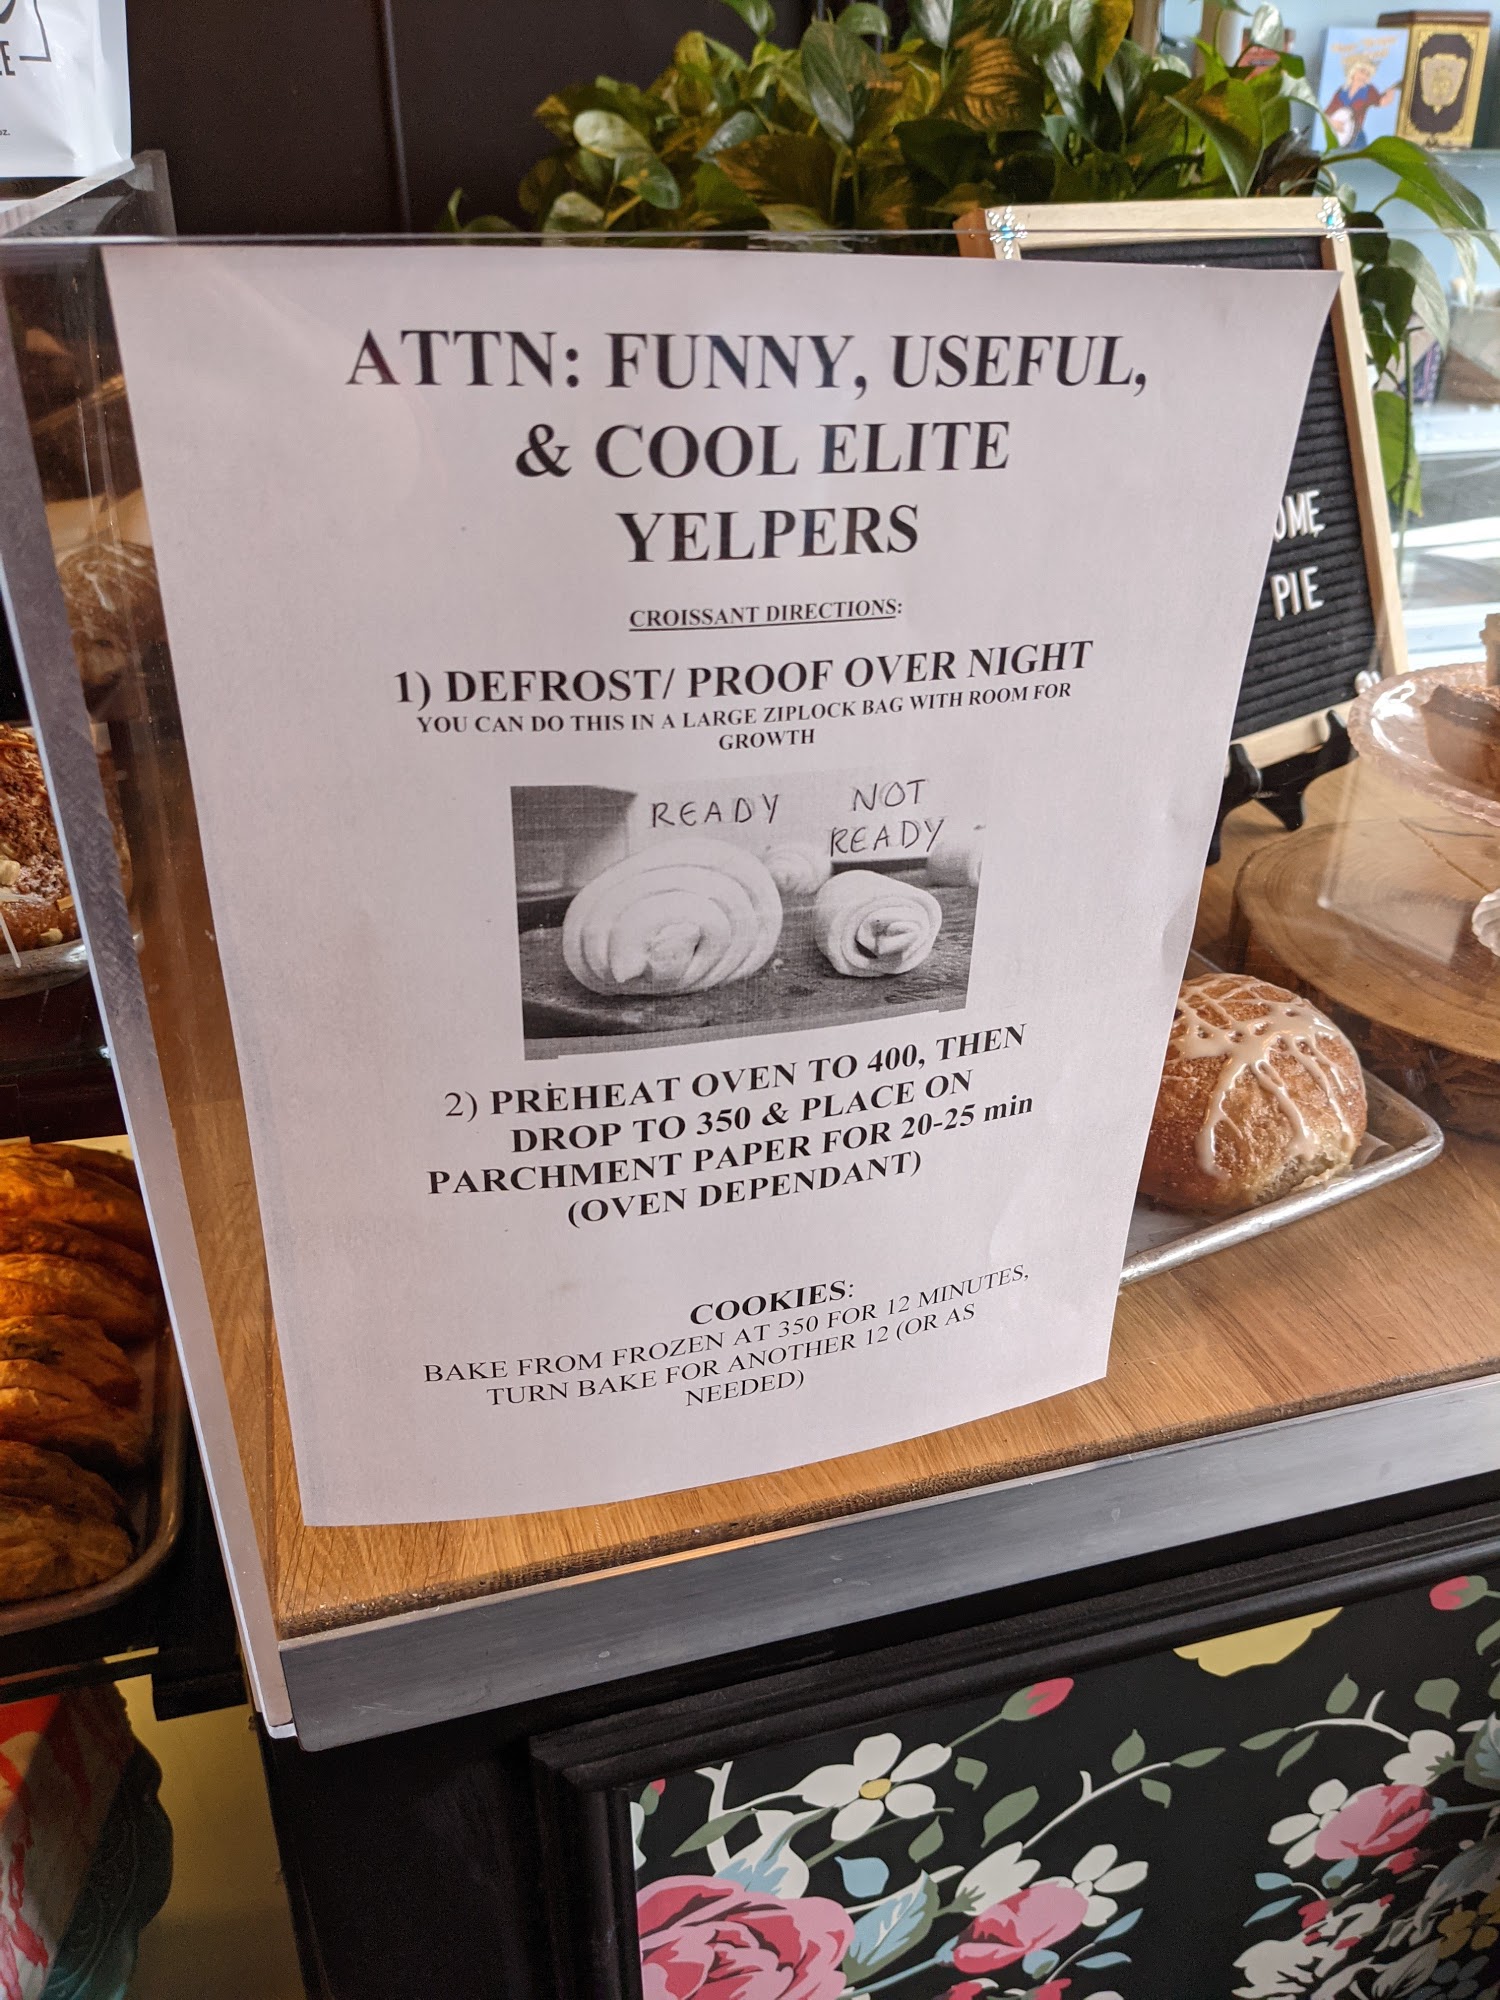 ATTN: FUNNY, USEFUL,
& COOL ELITE
YELPERS
CROISSANT DIRECTIONS:
1) DEFROST/ PROOF OVER NIGHT
YOU CAN DO THIS IN A LARGE ZIPLOCK BAG WITH ROOM FOR
GROWTH
READY
NOT
READY
2) PREHEAT OVEN TO 400, THEN
DROP TO 350 & PLACE ON
PARCHMENT PAPER FOR 20-25 min
(OVEN DEPENDANT)
COOKIES:
BAKE FROM FROZEN AT 350 FOR 12 MINUTES,
TURN BAKE FOR ANOTHER 12 (OR AS
NEEDED)
OME
PIE